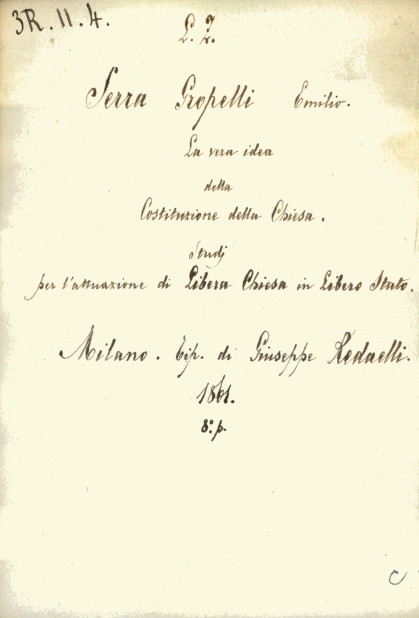 3R.11.4.
L. Z.
Serra Gropelli Emilio.
La vera idea
della
Costituzione della Chiesa.
Studj
per l'attuazione di Libera Chiesa in Libero Stato.
Milano. Tip. di Giuseppe Redaelli.
1861.
8.° p.
C